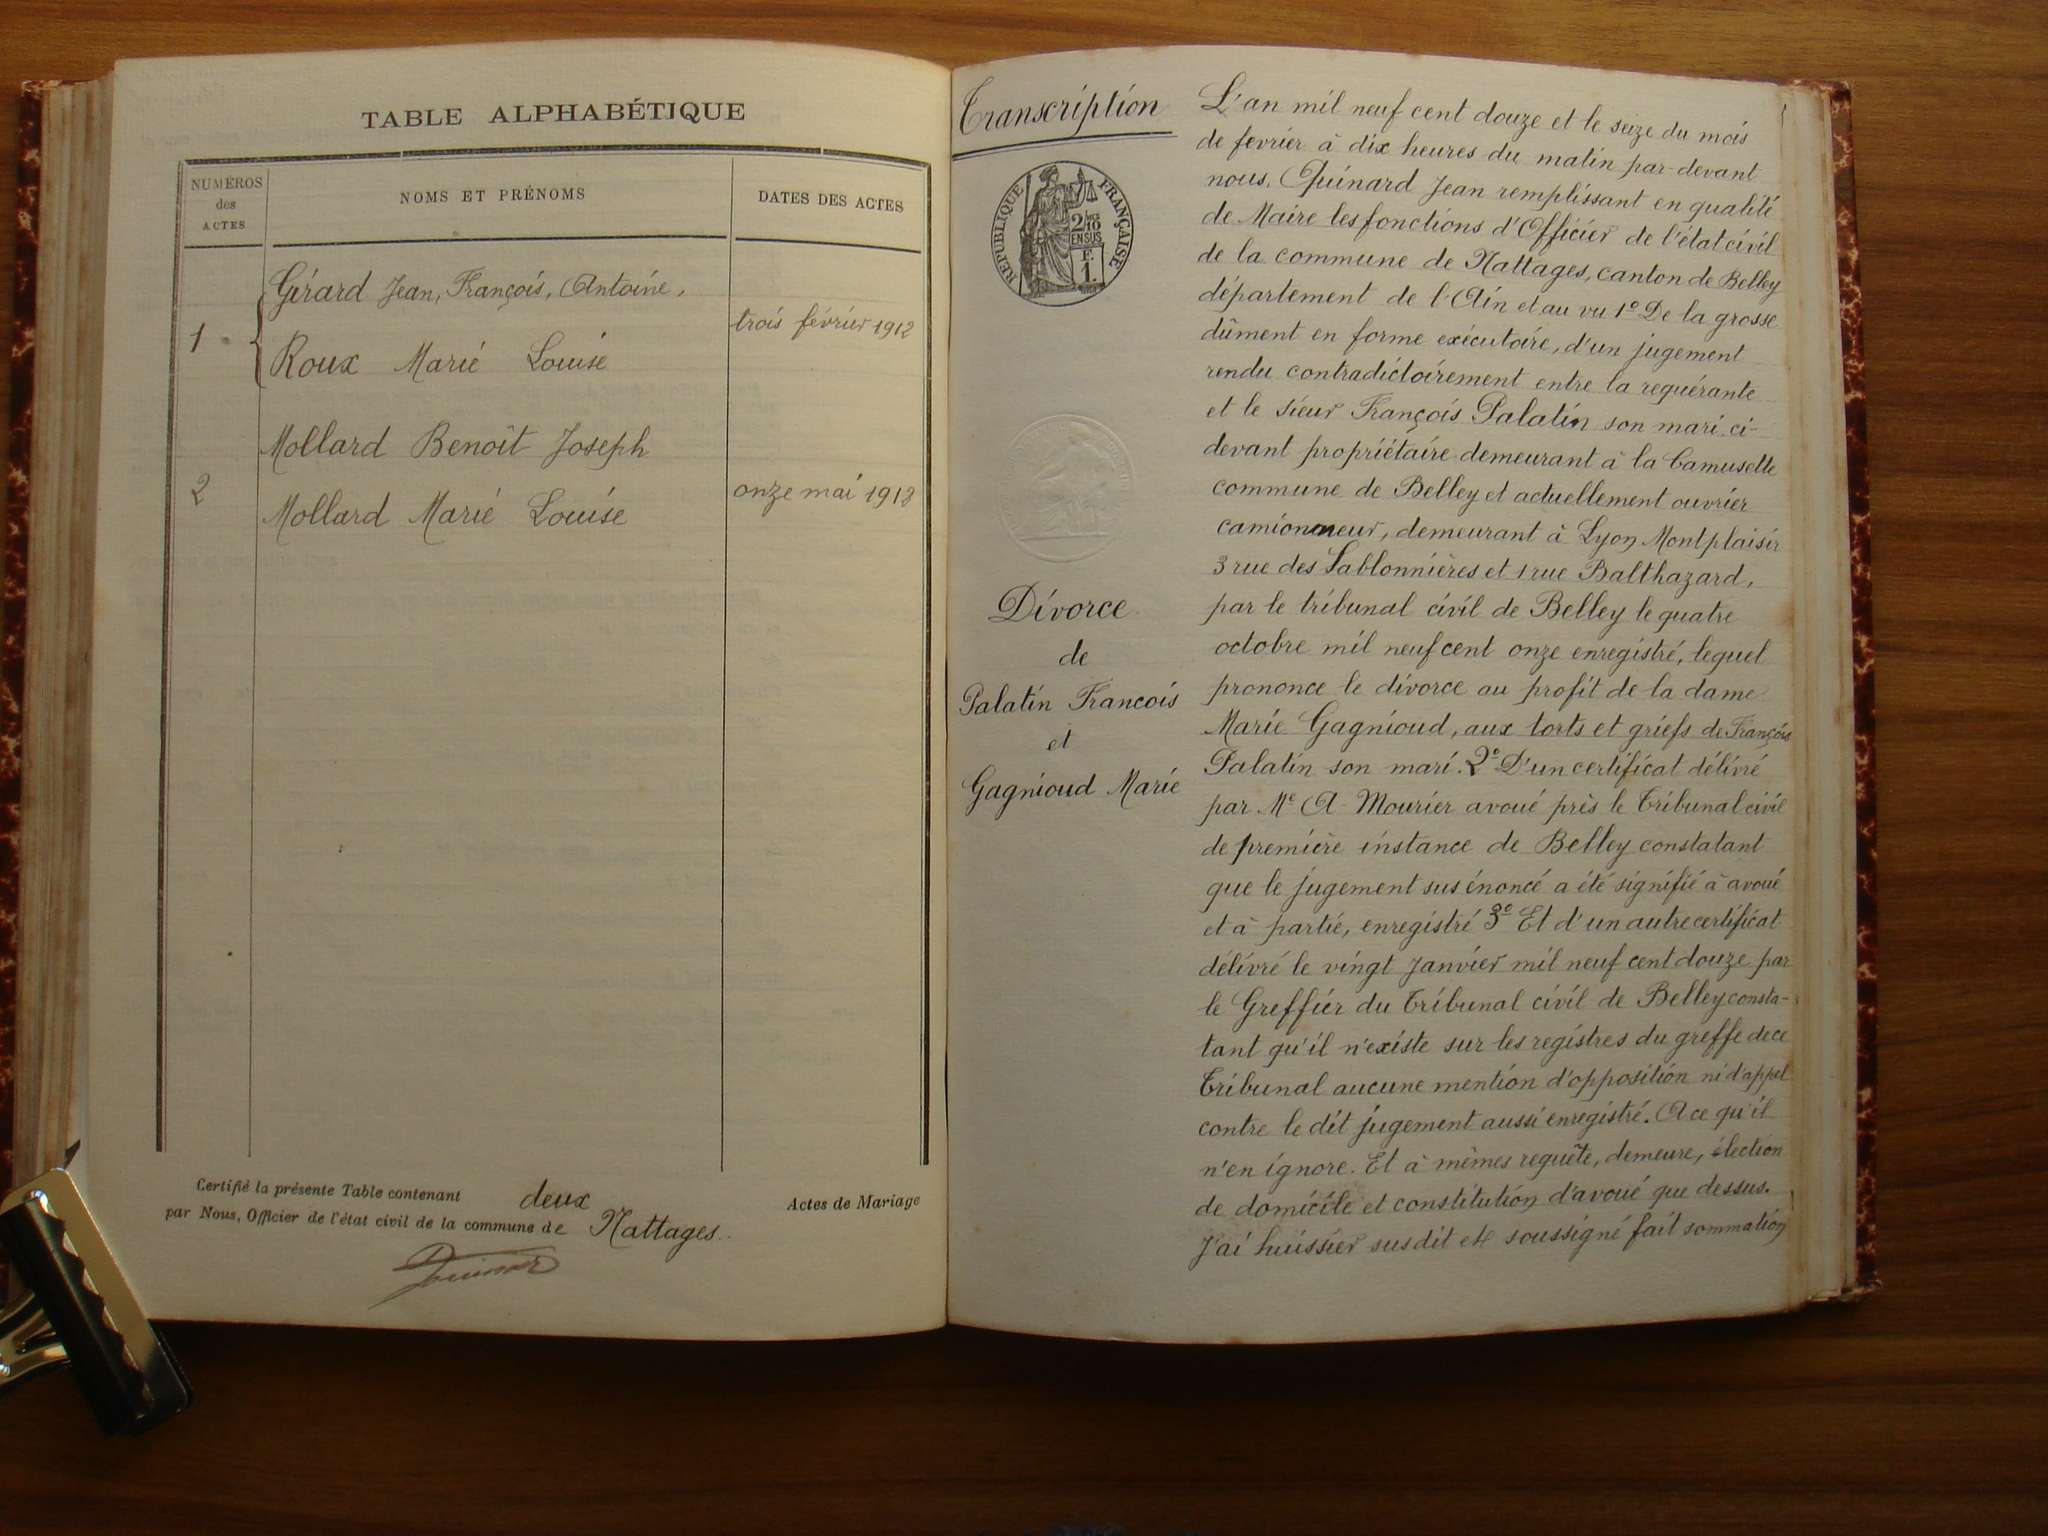 TABLE ALPHABÉTIQUE
NUMÉROS
des
ACTES
NOMS ET PRÉNOMS
DATES DES ACTES
1
Girard Jean, François, Antoine,
Roux Marie Louise
trois février 1912
2
Mollard Benoît Joseph
Mollard Marie Louise
onze mai 1912
Certifié la présente Table contenant deux Actes de Mariage
par Nous, Officier de l'état civil de la commune de Nattages.
Transcription
RÉPUBLIQUE FRANÇAISE
2/10
EN SUS
F.
1.
Divorce
de
Palatin Francois
et
Gagnioud Marie
L'an mil neuf cent douze et le seize du mois
de fevrier à dix heures du matin par-devant
nous, Quinard Jean remplissant en qualité
de Maire les fonctions d'Officier de l'état civil
de la commune de Nattages, canton de Belley
département de l'Ain et au vu 1° De la grosse
dûment en forme exécutoire, d'un jugement
rendu contradictoirement entre la requérante
et le sieur François Palatin son mari ci-
devant propriétaire demeurant à la Camusette
commune de Belley et actuellement ouvrier
camionneur, demeurant à Lyon Montplaisir
3 rue des Sablonnières et 1 rue Balthazard,
par le tribunal civil de Belley le quatre
octobre mil neuf cent onze enregistré, lequel
prononce le divorce au profit de la dame
Marie Gagnioud, aux torts et griefs de François
Palatin son mari. 2° D'un certificat délivré
par Me A. Mourier avoué près le Tribunal civil
de première instance de Belley constatant
que le jugement sus énoncé a été signifié à avoué
et à partie, enregistré 3° Et d'un autre certificat
délivré le vingt Janvier mil neuf cent douze par
le Greffier du Tribunal civil de Belley consta-
tant qu'il n'existe sur les registres du greffe de ce
Tribunal aucune mention d'opposition ni d'appel
contre le dit jugement aussi enregistré. A ce qu'il
n'en ignore. Et à mêmes requête, demeure, élection
de domicile et constitution d'avoué que dessus.
J'ai huissier susdit et soussigné fait sommation